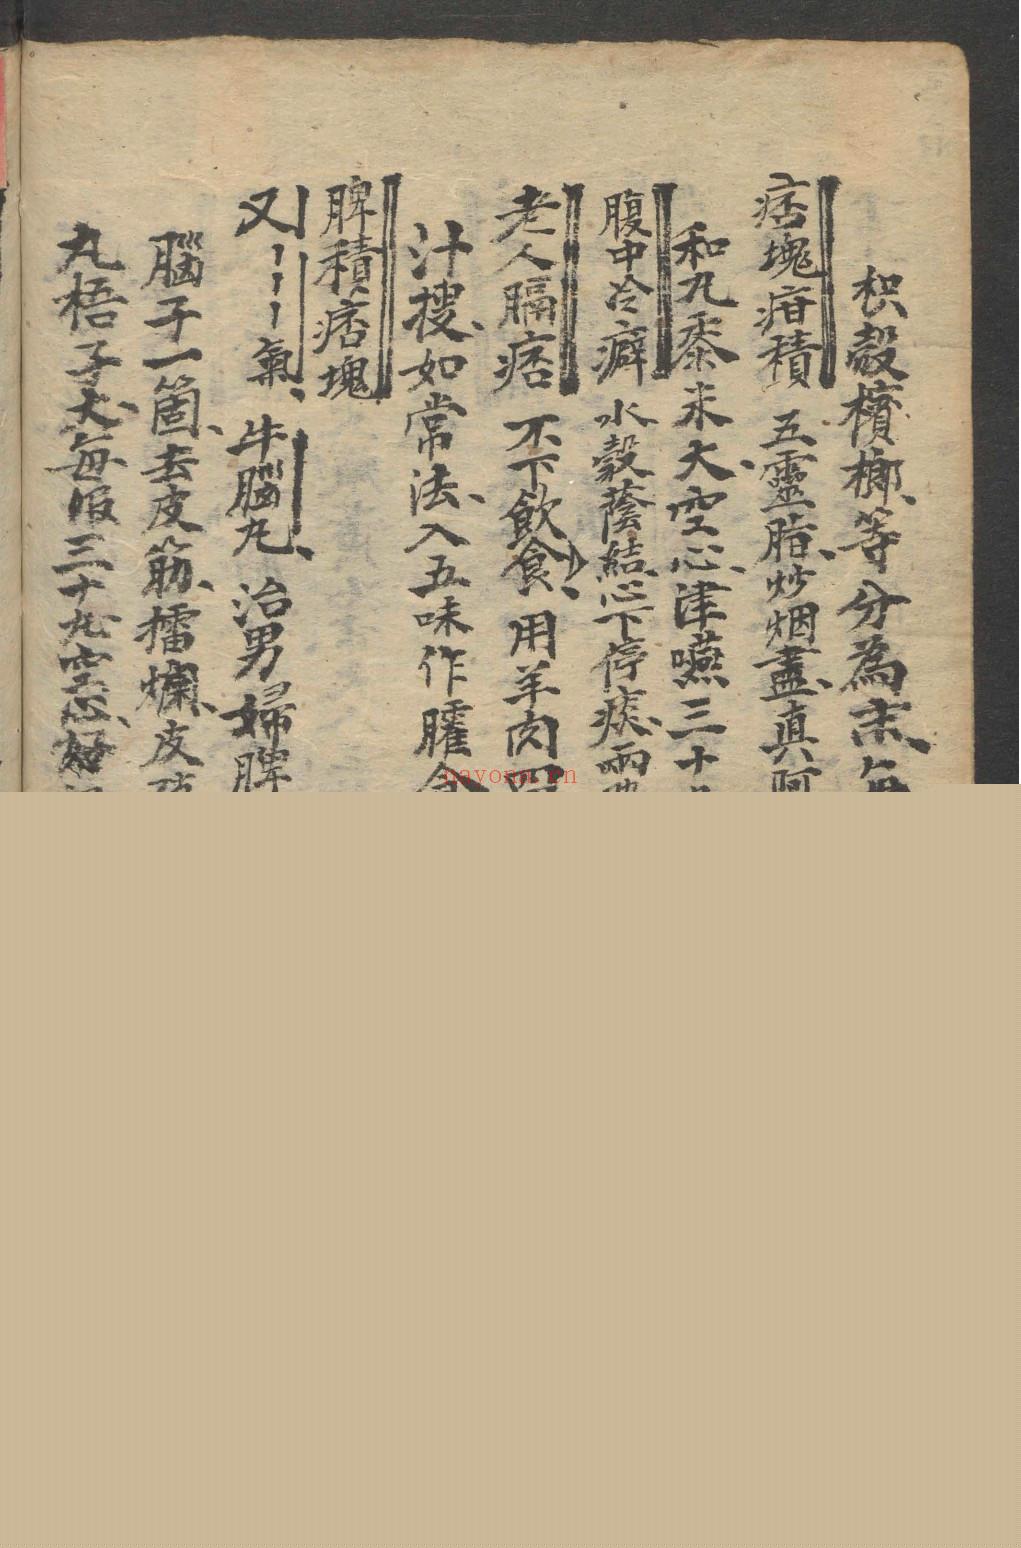 枳殼檳榔、等分為末、每
痞塊疳積 五靈脂、炒烟盡、真阿
和丸黍米大、空心、津嚥三十
腹中冷癖 水穀蔭結、心下停痰、兩
老人膈痞 不下飲食、用羊肉四
汁搜、如常法、入五味作臛食
脾積痞塊
又〡〡〡氣、牛腦丸、治男婦脾
腦子一箇、去皮筋、擂爛、皮硝
丸梧子大、每服三十丸、空心、好
nayona.cn